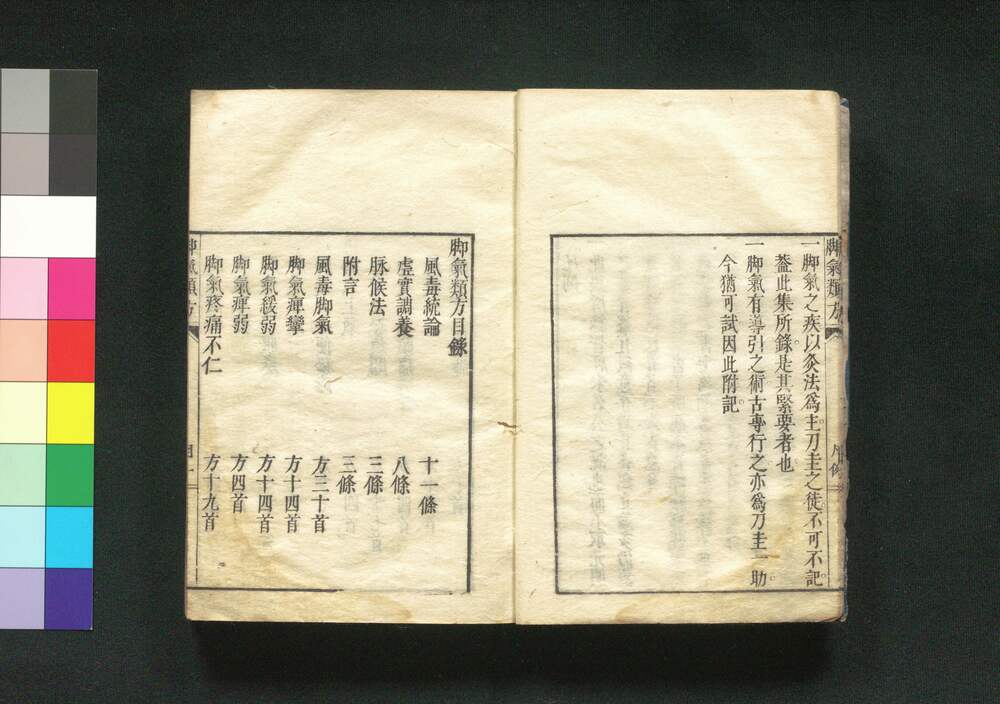 脚氣類方
一脚氣之疾以灸法爲主刀圭之徒不可不記
葢此集所錄是其緊要者也
一脚氣有導引之術古專行之亦爲刀圭一助
今猶可試因此附記
凡例
脚氣類方目錄
風毒統論 十一條
虛實調養 八條
脉候法 三條
附言 三條
風毒脚氣 方三十首
脚氣痺攣 方十四首
脚氣緩弱 方十四首
脚氣痺弱 方四首
脚氣疼痛不仁 方十九首
脚氣類方
目一